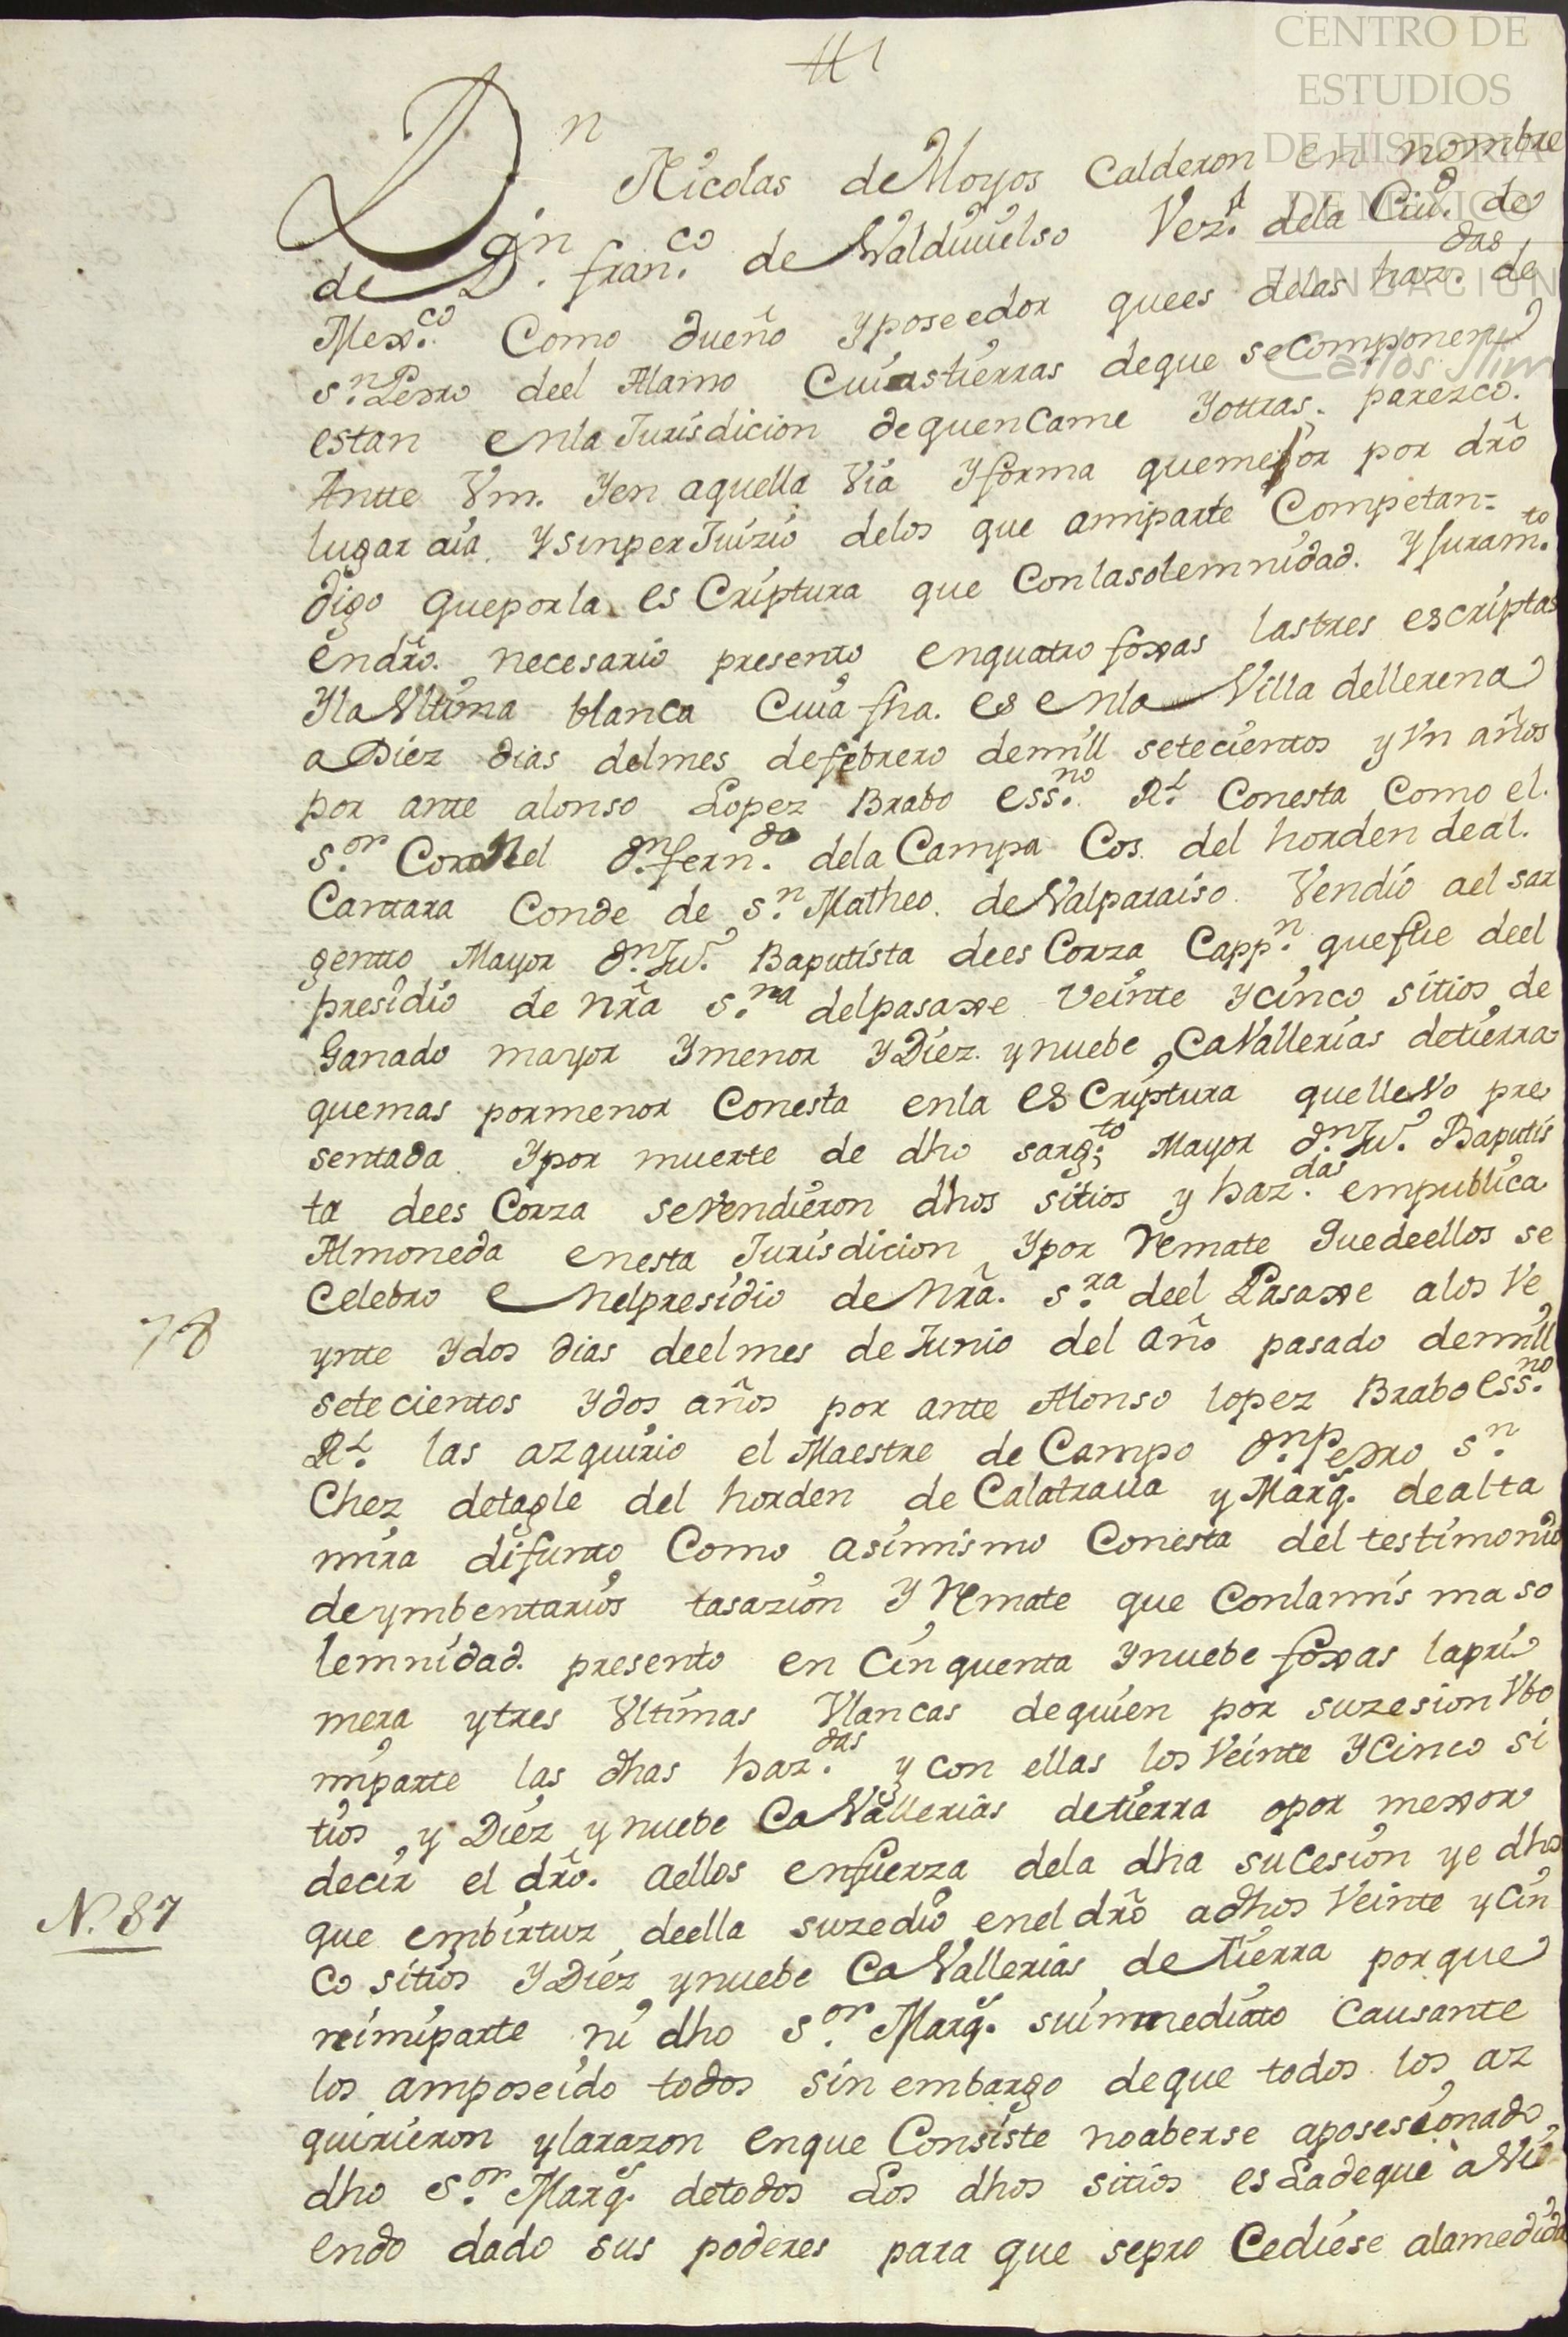 CENTRO DE
ESTUDIOS
DE HISTORIA
DE MEXICO
FUNDACION
Carlos Slim
Dn Nicolas de Moyos Calderon en nombre
de Dn. franco. de Valduuielso Vez. dela Ciud. de
Mexco. Como dueño yposeedor quees delas hazdas. de
sn. Pedro deel Alamo Cuiastierras deque secomponen
estan enla Jurisdicion de quencame Yottras. parezco.
Antte Vm. Yen aquella Via Yforma quemejor por dro
lugar aia. YsinperJuizio delos que amiparte Competan=
digo queporla esCriptura que Conlasolemnidad. Yjuramto.
endro. necesario presento enquatro foxas lastres escriptas
Yla Vltima blanca Cuia fha. es enla Villa dellerena
a Diez dias delmes defebrero demill setecientos y Vn años
por ante alonso Lopez Brabo essno. Rl. Conesta Como el.
sor. Coronel dn. ferndo. dela Campa Cos. del horden deal.
Cantara Conde de sn. Matheo. de Valparaiso. Vendio ael sar
gento Mayor dn. Ju. Baptista dees Corza Cappn. quefue deel
presidio de nra sra. delpasaxe Veinte ycinco sitios de
Ganado mayor Ymenor YDiez. ynuebe CaVallerias detierra
quemas pormenor Conesta enla esCriptura quelleVo pre
sentada. Ypor muerte de dho sargto. Mayor dn. Ju. Baputis
ta dees Corza seVendieron dhos sitios y hazdas. empublica
Almoneda enesta Jurisdicion Ypor Remate quedeellos se
Celebro enelpresidio de Nra. sra. deel Pasaxe alos Ve
78
ynte Ydos dias deelmes de Junio del año pasado demill
setecientos Ydos años por ante Alonso lopez Brabo essno.
Rl. las azquirio el Maestre de Campo dn. Pedro sn.
Chez detagle del horden de Calatraua y Marqs. dealta
mira difunto Como asimismo Conesta del testimonio
deymbentarios tasazion Y Remate que Conlamis ma so
lemnidad. presento en Cinquenta Ynuebe foxas lapri
mera ytres Vltimas Vlancas dequien por suzesion Vbo
miparte las dhas hazdas. y con ellas los Veinte YCinco si
tios y Diez y nuebe CaVallerias detierra opor mexor
decir el dro. aellos enfuerza dela dha sucesion ye dho
N. 87
que embirtuz deella suzedio enel dro adhos Veinte ycin
co sitios YDiez ynuebe CaVallerias detierra porque
nimiparte ni dho sor. Marqs. suimmediato Causante
los amposeido todos sin embargo deque todos los az
quirieron ylarazon enque Consiste noaberse aposesionado
dho sor. Marqs. detodos Los dhos sitios esLadeque aVi
endo dado sus poderes para que sepro Cediese alamedida